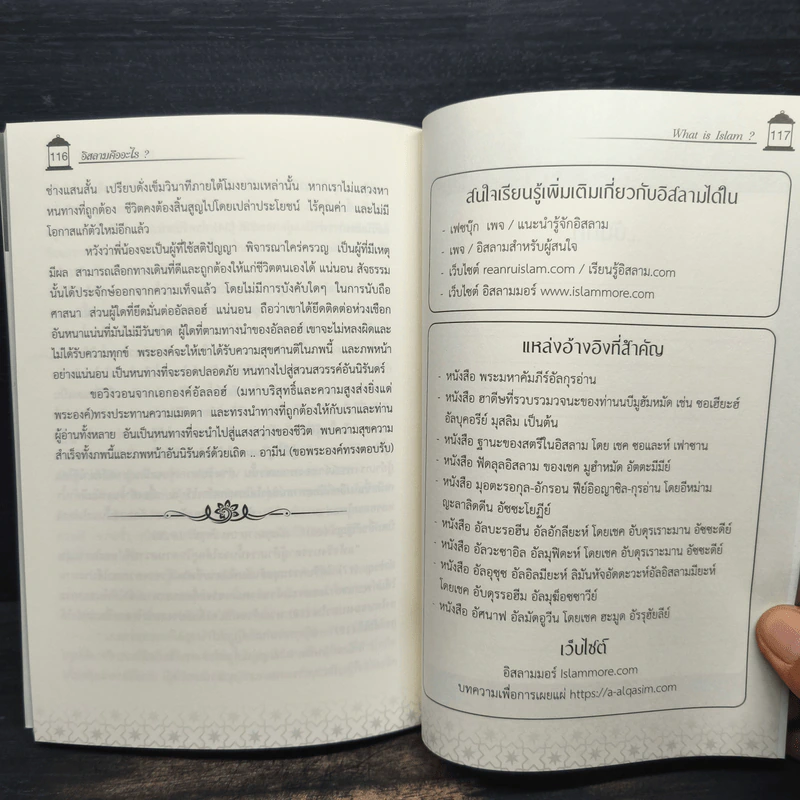 116
อิสลามคืออะไร ?
ช่างแสนสั้น เปรียบดั่งเข็มวินาทีภายใต้โมงยามเหล่านั้น หากเราไม่แสวงหา
หนทางที่ถูกต้อง ชีวิตคงต้องสิ้นสูญไปโดยเปล่าประโยชน์ ไร้คุณค่า และไม่มี
โอกาสแก้ตัวใหม่อีกแล้ว
หวังว่าพี่น้องจะเป็นผู้ที่ใช้สติปัญญา พิจารณาใคร่ครวญ เป็นผู้ที่มีเหตุ
มีผล สามารถเลือกทางเดินที่ดีและถูกต้องให้แก่ชีวิตตนเองได้ แน่นอน สัจธรรม
นั้นได้ประจักษ์ออกจากความเท็จแล้ว โดยไม่มีการบังคับใดๆ ในการนับถือ
ศาสนา ส่วนผู้ใดที่ยึดมั่นต่ออัลลอฮ์ แน่นอน ถือว่าเขาได้ยึดติดต่อห่วงเชือก
อันหนาแน่นที่มันไม่มีวันขาด ผู้ใดที่ตามทางนำของอัลลอฮ์ เขาจะไม่หลงผิดและ
ไม่ได้รับความทุกข์ พระองค์จะให้เขาได้รับความสุขศานติในภพนี้ และภพหน้า
อย่างแน่นอน เป็นหนทางที่จะรอดปลอดภัย หนทางไปสู่สวนสวรรค์อันนิรันดร์
ขอวิงวอนจากเอกองค์อัลลอฮ์ (มหาบริสุทธิ์และความสูงส่งยิ่งแด่
พระองค์)ทรงประทานความเมตตา และทรงนำทางที่ถูกต้องให้กับเราและท่าน
ผู้อ่านทั้งหลาย อันเป็นหนทางที่จะนำไปสู่แสงสว่างของชีวิต พบความสุขความ
สำเร็จทั้งภพนี้และภพหน้าอันนิรันดร์ด้วยเถิด ... อามีน (ขอพระองค์ทรงตอบรับ)
What is Islam ?
117
สนใจเรียนรู้เพิ่มเติมเกี่ยวกับอิสลามได้ใน
- เฟซบุ๊ก เพจ / แนะนำรู้จักอิสลาม
- เพจ / อิสลามสำหรับผู้สนใจ
- เว็บไซต์ reanruislam.com / เรียนรู้อิสลาม.com
- เว็บไซต์ อิสลามมอร์ www.islammore.com
แหล่งอ้างอิงที่สำคัญ
- หนังสือ พระมหาคัมภีร์อัลกุรอ่าน
- หนังสือ ฮาดีษที่รวบรวมวจนะของท่านนบีมูฮัมหมัด เช่น ซอเฮียะฮ์
อัลบุคอรีย์ มุสลิม เป็นต้น
- หนังสือ ฐานะของสตรีในอิสลาม โดย เชค ซอและห์ เฟาซาน
- หนังสือ ฟัดลุลอิสลาม ของเชค มูฮำหมัด อัตตะมีมีย์
- หนังสือ มุอตะรอกุล-อักรอน ฟีย์อิอญาซิล-กุรอ่าน โดยอีหม่าม
ญะลาลิดดีน อัซซะโยฏีย์
- หนังสือ อัลบะรอฮีน อัลอักลียะห์ โดยเชค อับดุรเราะมาน อัซซะดีย์
- หนังสือ อัลวะซาอิล อัลมุฟิตะห์ โดยเชค อับดุรเราะมาน อัซซะดีย์
- หนังสือ อัลอุซุซ อัลอิลมียะห์ ลิมันหัจอัดดะวะห์อัลอิสลามมียะห์
โดยเชค อับดุรรอฮีม อัลมุฆ็อซซาวีย์
- หนังสือ อัศนาฟ อัลมัดอูวีน โดยเชค ฮะมูด อัรรุฮัยลีย์
เว็บไซต์
อิสลามมอร์ Islammore.com
บทความเพื่อการเผยแผ่ https://a-alqasim.com